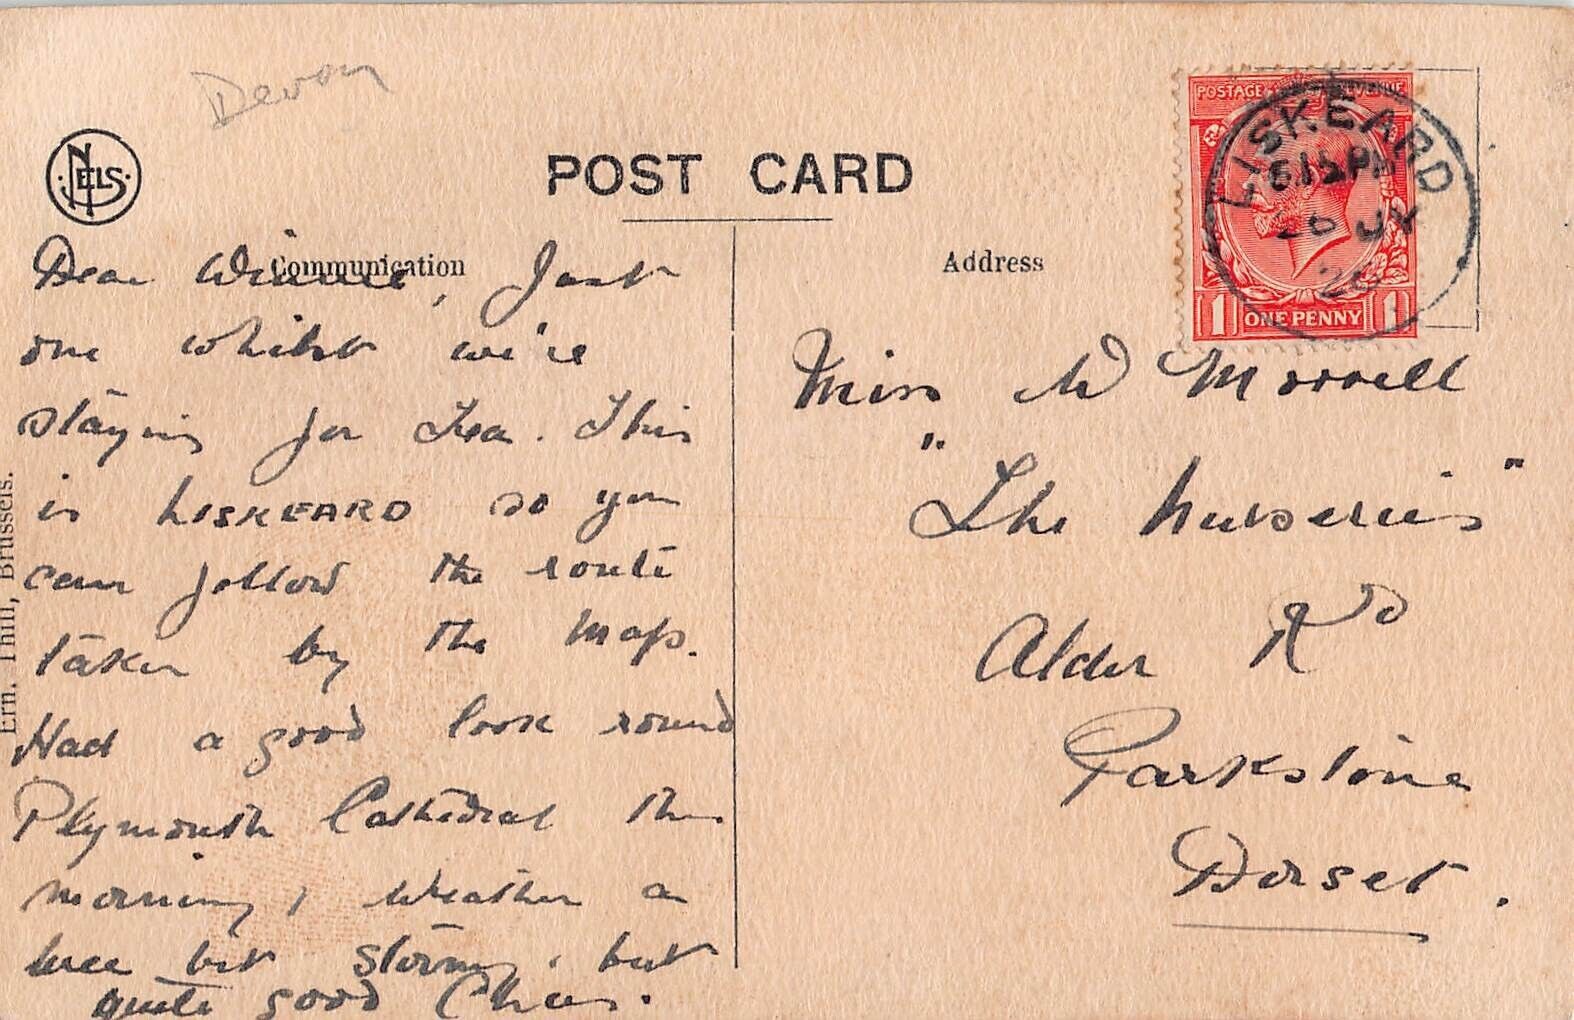 Devon
NELS
POST CARD
Communication
Dear Winnie, Just
one whilst we're
staying for Tea. This
is LISKEARD so you
can follow the route
taken by the map.
Had a good look round
Plymouth Cathedral this
morning, weather a
wee bit stormy, but
quite good Chas.
Ern. Thill, Brussels.
Address
POSTAGE REVENUE
1 ONE PENNY 1
LISKEARD
6.15 PM
26 JY
26
Miss W Morrell
"The Nurseries"
Alder Rd
Parkstone
Dorset.